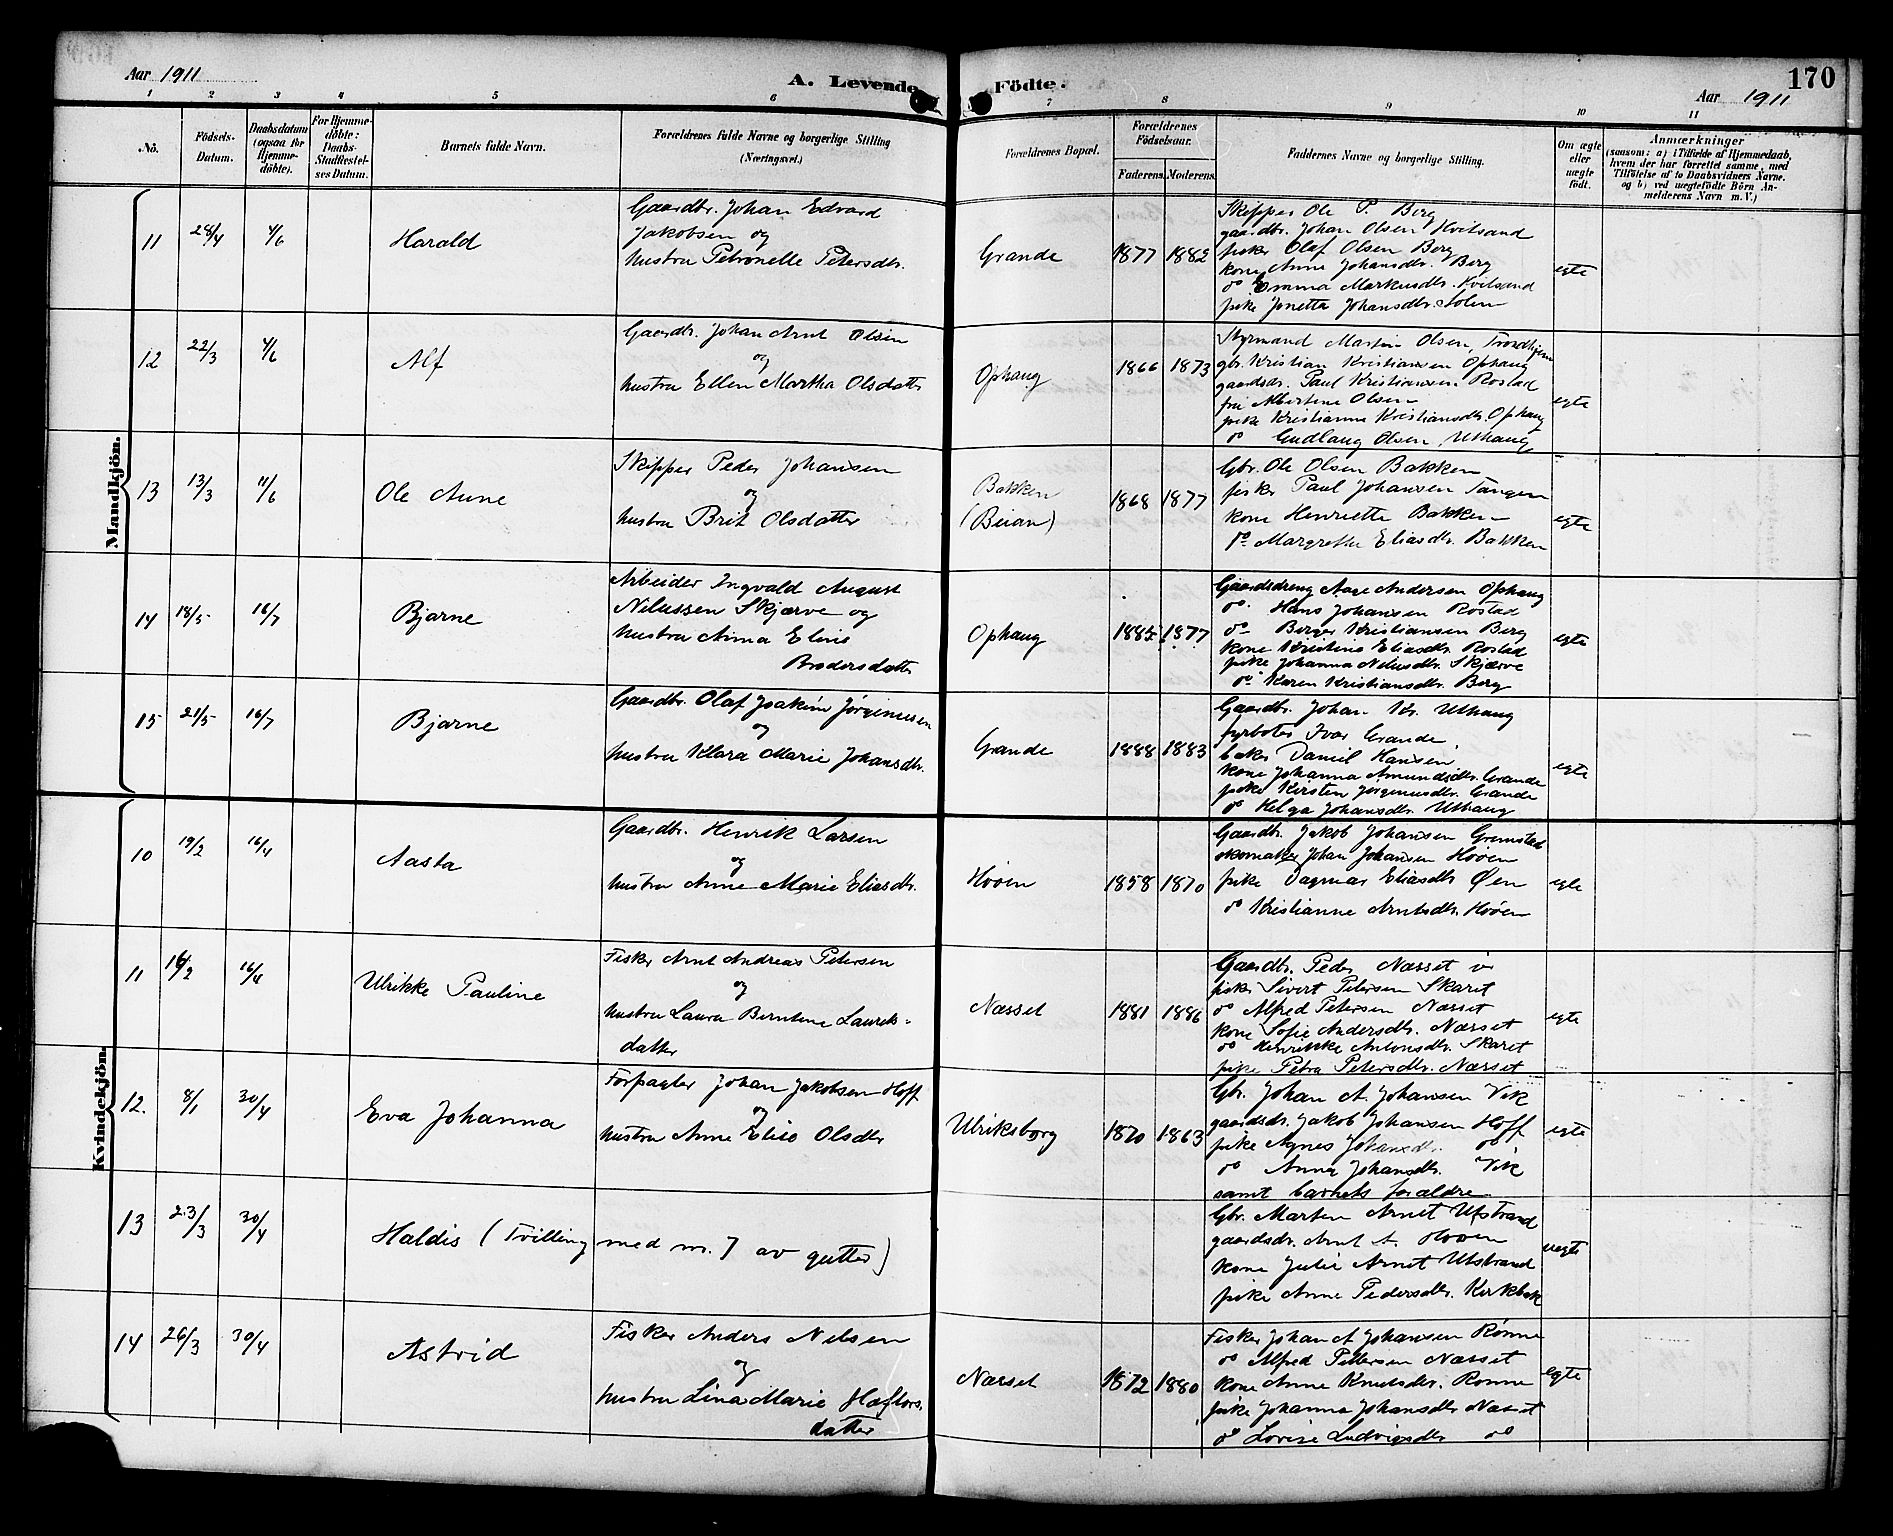 Aar 1911
A. Levende Födte.
170
Aar 1911
1 2 3 4 5 6 7 8 9 10 11
Nô.
Födsels-Datum.
Daabsdatum (ogsaa for Hjemme-döbte).
For Hjemme-döbte: Daabs-Stadfæstel-ses Datum.
Barnets fulde Navn.
Forældrenes fulde Navne og borgerlige Stilling
(Næringsvei.)
Forældrenes Bopæl.
Forældrenes Födselsaar.
Faderens. Moderens.
Faddernes Navne og borgerlige Stilling.
Om ægte eller uægte født.
Anmærkninger
(saasom: a) i Tilfælde af Hjemmedaab,
hvem der har forrettet samme, med
Tilföielse af to Daabsvidners Navne.
og b) ved uægtefödte Börn An-
melderens Navn m. V.)
Mandkjön.
11 28/4 4/6 Harald
Gaardbr. Johan Edvard
Jakobsen og
hustru Petronelle Petersdtr.
Grande 1877 1882
Skipper Ole P. Berg
gaardbr. Johan Olsen Hvitsand
fisker Olaf Olsen Berg
kone Anne Johansdtr. Berg
do Emma Markusdtr. Kvitsand
pike Jonetta Johansdtr. Solem
egte
12 22/3 4/6 Alf
Gaardbr. Johan Arnt Olsen
og
hustru Ellen Martha Olsdatter
Ophaug 1866 1873
Styrmand Martin Olsen, Trondhjem
gbr. Kristian Kristiansen Ophaug
gaardsdr. Paul Kristiansen Rostad
fru Albertine Olsen
pike Kristianne Kristiansdtr. Ophaug
do Gudlaug Olsen Uthaug
egte
13 13/3 11/6 Ole Aune
Skipper Peder Johansen
og
hustru Brit Olsdatter
Bakken
(Beian)
1868 1877
Gbr. Ole Olsen Bakken
fisker Paul Johansen Tangen
kone Henriette Bakken
do Margrethe Eliasdtr. Bakken
egte
14 18/5 16/7 Bjarne
Arbeider Ingvald August
Nilussen Skjærve og
hustru Anna Elise
Brodersdatter
Ophaug 1885 1877
Gaardsdreng Aage Andersen Ophaug
do Hans Johansen Rostad
do Berger Kristiansen Berg
kone Kristine Eliasdtr. Rostad
pike Johanna Nilusdtr. Skjærve
do Karen Kristiansdtr. Berg
egte
15 21/5 16/7 Bjarne
Gaardbr. Olaf Joakim Jørginussen
og
hustru Klara Marie Johansdtr.
Grande 1888 1883
Gaardbr. Johan Kr. Uthaug
fyrbøter Ivar Grande
baker Daniel Hansen
kone Johanna Amundsdtr. Grande
pike Kirsten Jørginusdtr. Grande
do Helga Johansdtr. Uthaug
egte
Kvindekjön.
10 19/2 16/4 Aasta
Gaardbr. Henrik Larsen
og
hustru Anne Marie Eliasdtr.
Hoøen 1858 1870
Gaardbr. Jakob Johansen Grønstad
skomaker Johan Johansen Hoøen
pike Dagmar Eliasdtr. Øen
do Kristianne Arntsdtr. Hoøen
egte
11 16/2 16/4 Ulrikke Pauline
Fisker Arnt Andreas Petersen
og
hustru Laura Berntine Laurits-
datter
Næsset 1881 1886
Gaardbr. Peder Næsset
fisker Sivert Petersen Skaret
do Alfred Petersen Næsset
kone Sofie Andersdtr. Næsset
do Henrikke Antonsdtr. Skaret
pike Petra Petersdtr. Næsset
egte
12. 8/1 30/4 Eva Johanna
Forpagter Johan Jakobsen Hoff
og
hustru Anne Elise Olsdtr
Ulriksborg 1870 1863
Gbr. Johan A. Johansen Vik
gaardsdr. Jakob Johansen Hoff
pike Agnes Johansdtr. do
do Anna Johansdtr. Vik
samt barnets forældre
egte
13 23/3 30/4 Haldis (Tvilling med nr. 7 av gutter)
Gbr. Marten Arnet Utstrand
gaardsdr. Arnt A. Hoøen
kone Julie Arnet Utstrand
pike Anne Pedersdtr. Kirkbak
uegte
14 26/3 30/4 Astrid
Fisker Anders Nilsen
og
hustru Lina Marie Hæftors.
datter
Næsset 1872 1880
Fisker Johan A. Johansen Rønne
do Alfred Pettersen Næsset
kone Anne Knutsdtr. Rønne
pike Johanna Johansdtr Næsset
do Lovise Ludvigsdtr do
egte